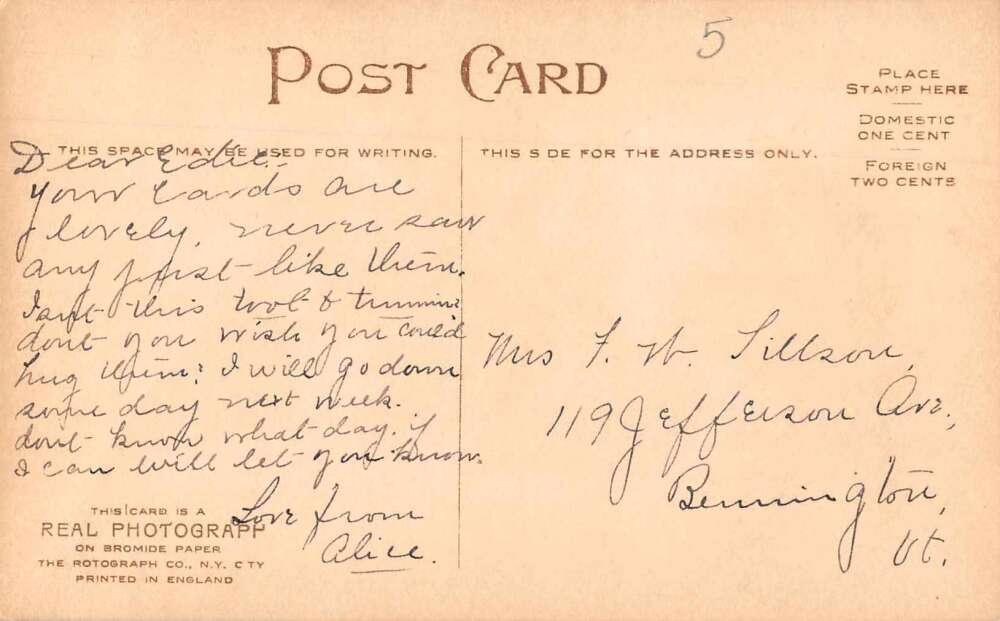 5
POST CARD
PLACE
STAMP HERE
DOMESTIC
ONE CENT
FOREIGN
TWO CENTS
THIS SPACE MAY BE USED FOR WRITING.
THIS S DE FOR THE ADDRESS ONLY.
Dear Edie:-
Your cards are
lovely, never saw
any just like them.
Isn't this to
dont you wish you could
hug them? I will go down
some day next week.
dont know what day. if
I can will let you know.
Love from
Alice.
Mrs F. W. Tillson,
119 Jefferson Ave,
Bennington,
Vt.
THIS CARD IS A
REAL PHOTOGRAPH
ON BROMIDE PAPER
THE ROTOGRAPH CO., N.Y. C TY
PRINTED IN ENGLAND